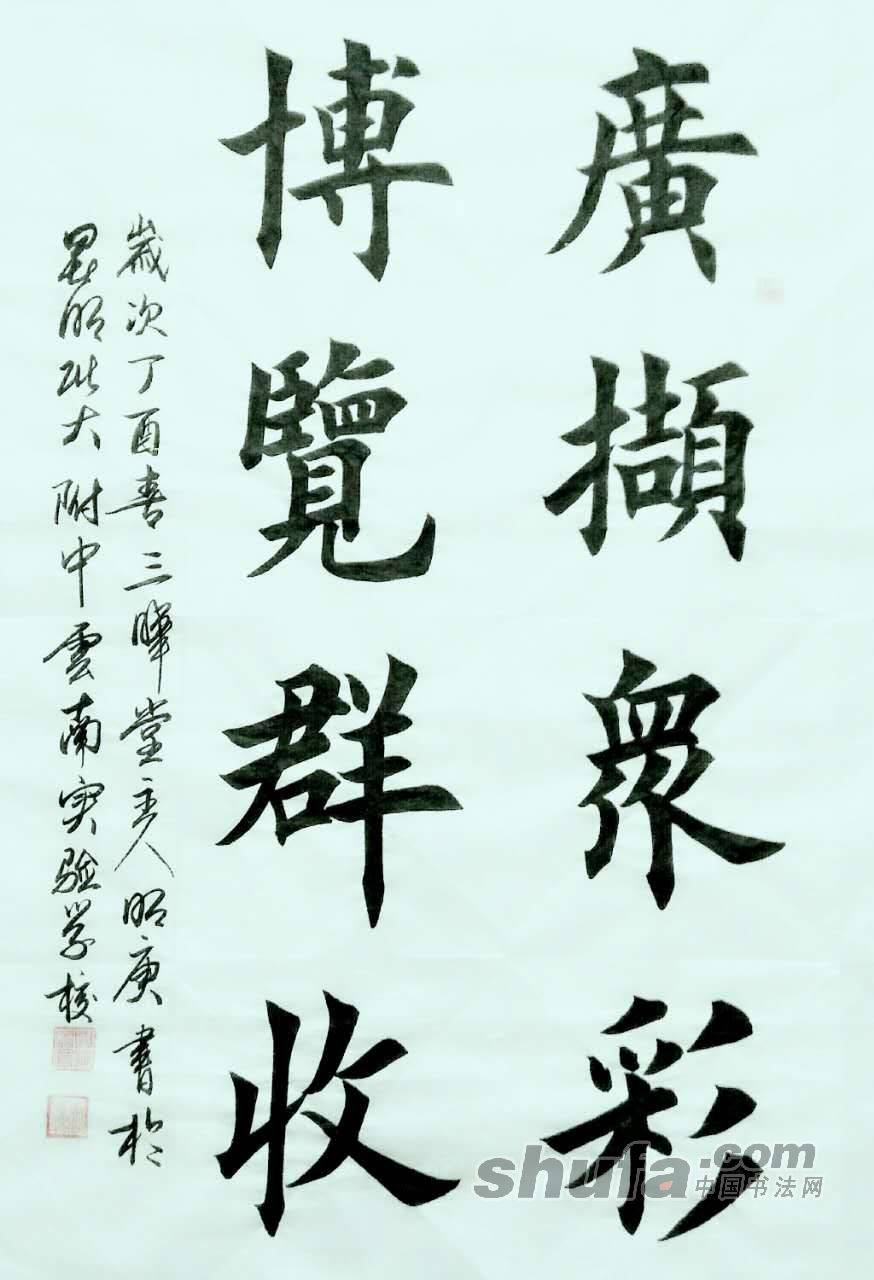 廣擷眾彩
博覽群收
歲次丁酉春三暉堂主人明庚書於
昆明北大附中雲南实驗学校
shufa.com
中国书法网